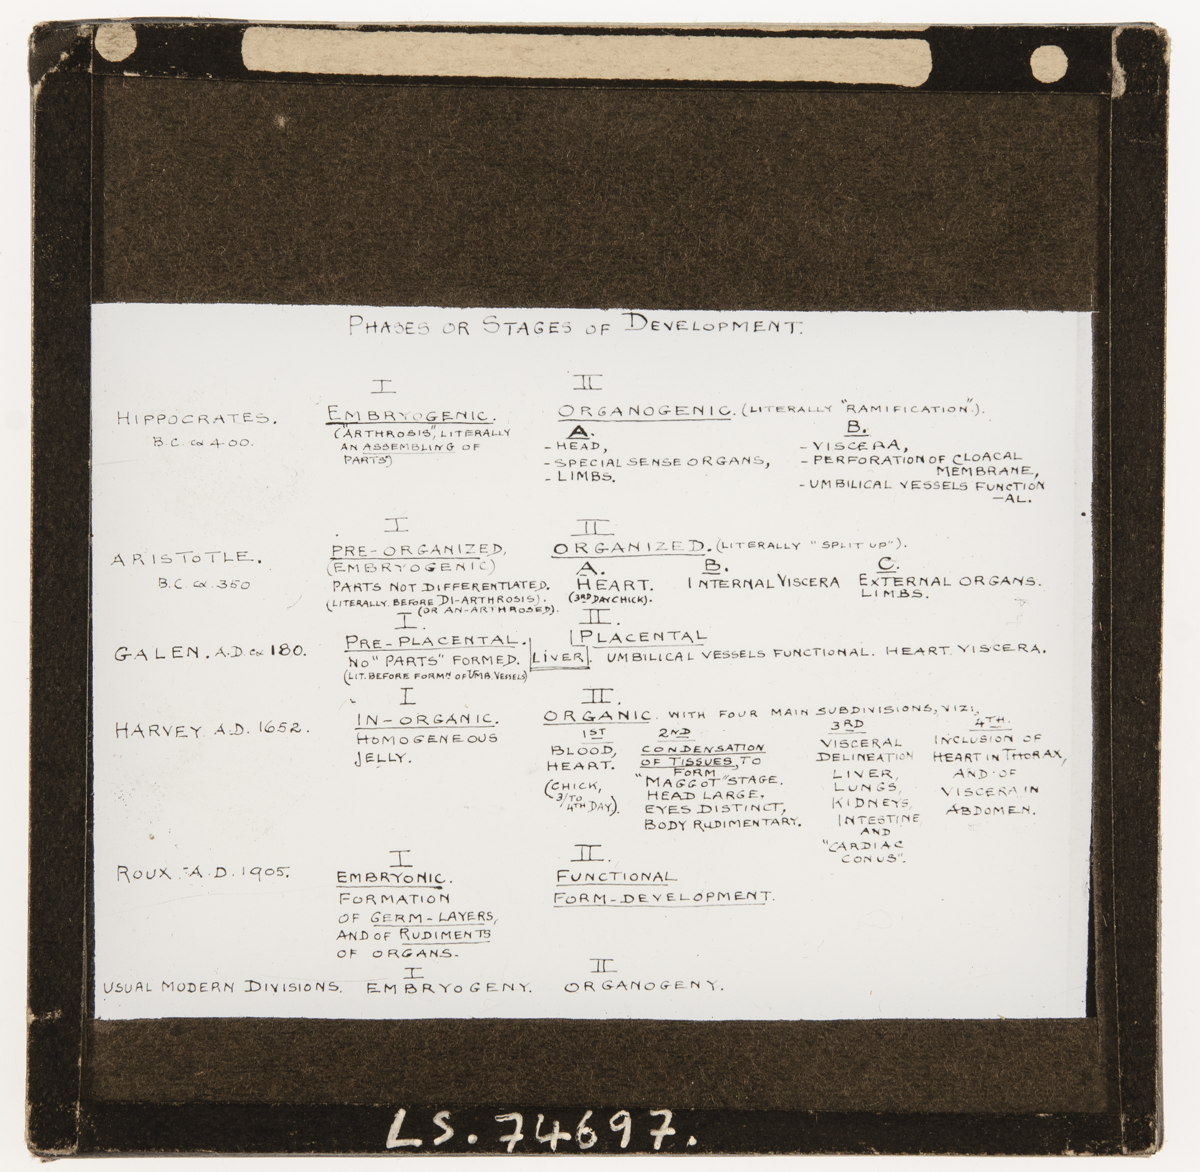 PHASES OR STAGES OF DEVELOPMENT.
I II
HIPPOCRATES. B.C. ca 400.
EMBRYOGENIC.
("ARTHROSIS", LITERALLY
AN ASSEMBLING OF
PARTS)
ORGANOGENIC. (LITERALLY "RAMIFICATION").
A.
- HEAD,
- SPECIAL SENSE ORGANS,
- LIMBS.
B.
- VISCERA,
- PERFORATION OF CLOACAL
MEMBRANE,
- UMBILICAL VESSELS FUNCTION
-AL.
I II
ARISTOTLE.
B.C. ca 350
PRE-ORGANIZED,
(EMBRYOGENIC)
PARTS NOT DIFFERENTIATED.
(LITERALLY BEFORE DI-ARTHROSIS).
(OR AN-ARTHROSED).
ORGANIZED. (LITERALLY "SPLIT UP").
A.
HEART.
(3RD DAY CHICK).
B.
INTERNAL VISCERA
C.
EXTERNAL ORGANS.
LIMBS.
I. II.
GALEN. A.D. ca 180.
PRE-PLACENTAL.
NO "PARTS" FORMED.
(LIT. BEFORE FORMN OF UMB. VESSELS)
LIVER.
PLACENTAL
UMBILICAL VESSELS FUNCTIONAL. HEART. VISCERA.
I II.
HARVEY A.D. 1652.
IN-ORGANIC.
HOMOGENEOUS
JELLY.
ORGANIC. WITH FOUR MAIN SUBDIVISIONS, VIZ:,
1ST
BLOOD,
HEART.
(CHICK,
3/TO
4TH DAY).
2ND
CONDENSATION
OF TISSUES, TO
FORM
"MAGGOT" STAGE.
HEAD LARGE.
EYES DISTINCT,
BODY RUDIMENTARY.
3RD
VISCERAL
DELINEATION
LIVER,
LUNGS,
KIDNEYS,
INTESTINE
AND
"CARDIAC
CONUS".
4TH.
INCLUSION OF
HEART IN THORAX,
AND OF
VISCERA IN
ABDOMEN.
I II.
ROUX - A.D. 1905.
EMBRYONIC.
FORMATION
OF GERM-LAYERS,
AND OF RUDIMENTS
OF ORGANS.
FUNCTIONAL
FORM-DEVELOPMENT.
I II
USUAL MODERN DIVISIONS. EMBRYOGENY. ORGANOGENY.
LS. 74697.